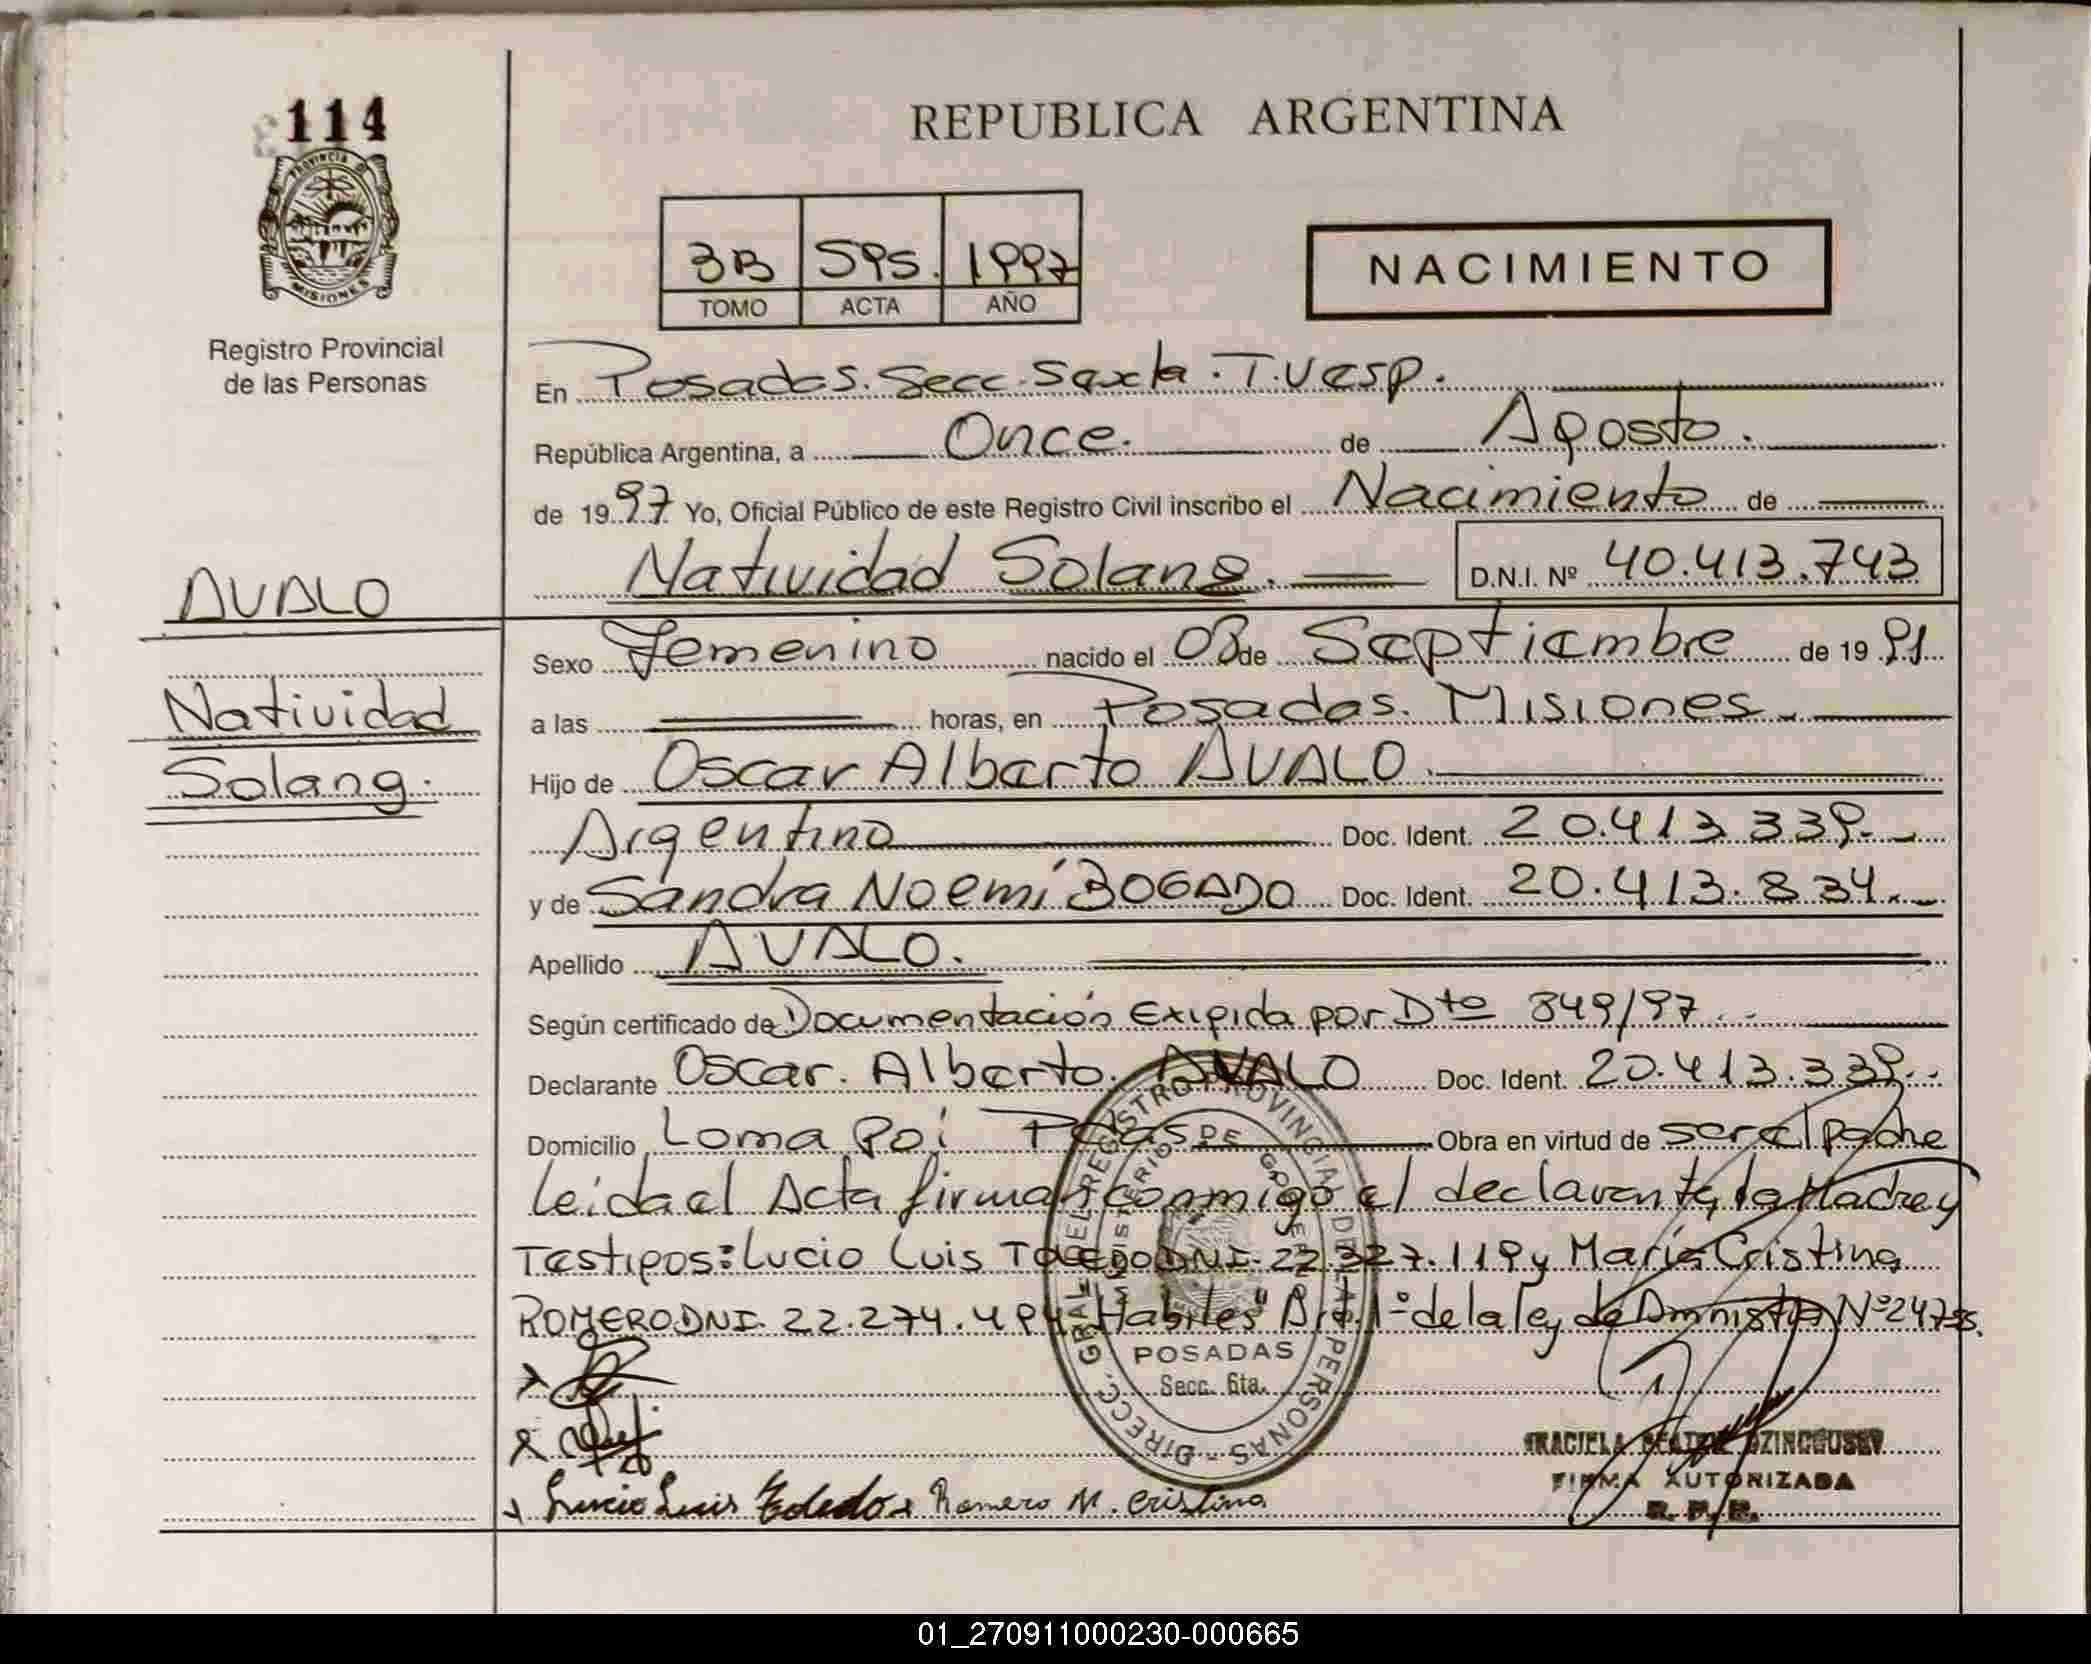 114
PROVINCIA DE
MISIONES
Registro Provincial
de las Personas
REPUBLICA ARGENTINA
3B 595. 1997
TOMO ACTA AÑO
NACIMIENTO
En Posadas. Secc. Sexta. T. Vesp.
República Argentina, a Once. de Agosto.
de 1997 Yo, Oficial Público de este Registro Civil inscribo el Nacimiento de
Natividad Solang. D.N.I. Nº 40.413.743
AVALO
Natividad
Solang.
Sexo Femenino nacido el 08 de Septiembre de 1991
a las horas, en Posadas. Misiones.
Hijo de Oscar Alberto AVALO.
Argentino Doc. Ident. 20.413.339.
y de Sandra Noemí BOGADO Doc. Ident. 20.413.834.
Apellido AVALO.
Según certificado de Documentación Exigida por Dto 849/97.
Declarante Oscar. Alberto. AVALO Doc. Ident. 20.413.339.
Domicilio Loma Poi Pdas Obra en virtud de ser el padre
Leida el Acta firman conmigo el declarante, la Madre y
Testigos: Lucio Luis TOLEDO DNI. 22.327.119 y María Cristina
ROMERO DNI. 22.274.494 "Habiles" Art. 1º de la ley de Amnistia Nº 24755.
DIRECC. GRAL. EL REGISTRO PROVINCIAL DE LAS PERSONAS
MINISTERIO DE GOBIERNO
POSADAS
Secc. 6ta.
Lucio Luis Toledo Romero M. Cristina
GRACIELA
FIRMA AUTORIZADA
R. P. P.
01_270911000230-000665